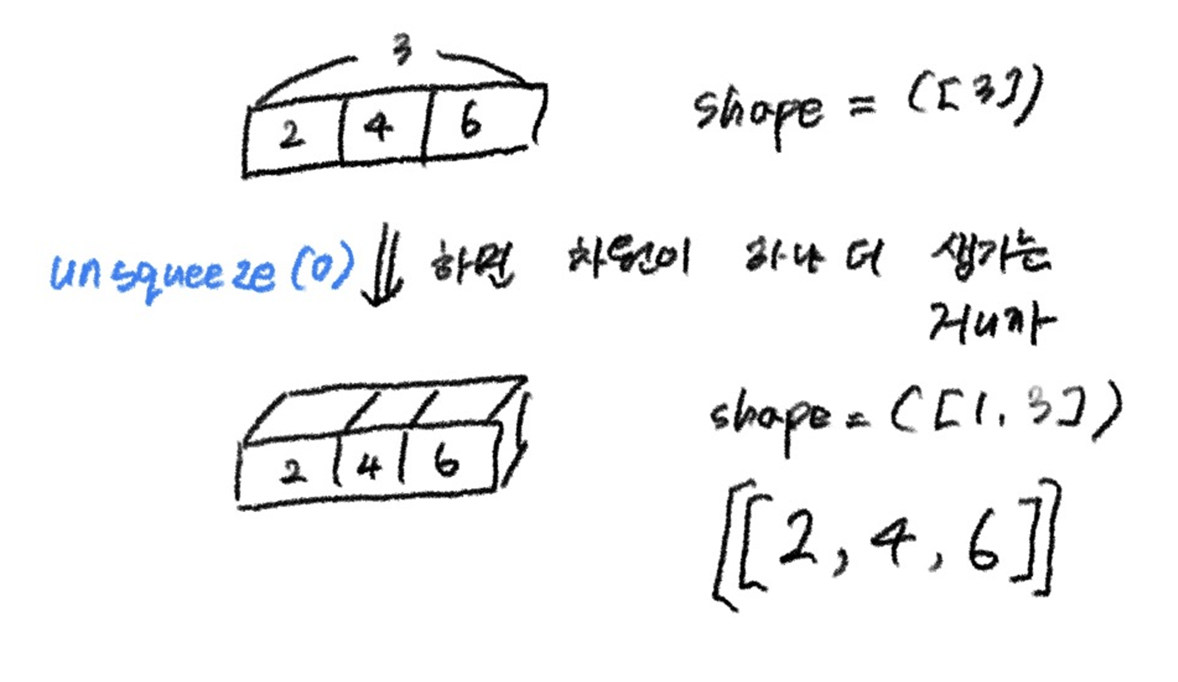 3
2 4 6
shape = ([3])
unsqueeze(0) 하면 차원이 하나 더 생기는
거니까
2 4 6
shape = ([1, 3])
[[2, 4, 6]]